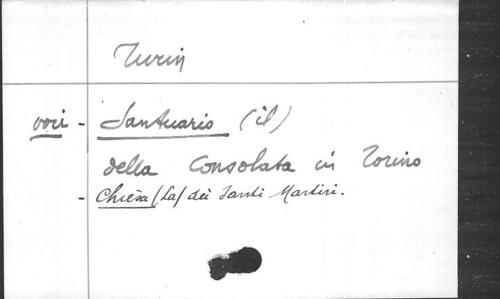 Turin
voir - Santuario (il)
della Consolata in Torino
- Chiesa (La) dei Santi Martiri.